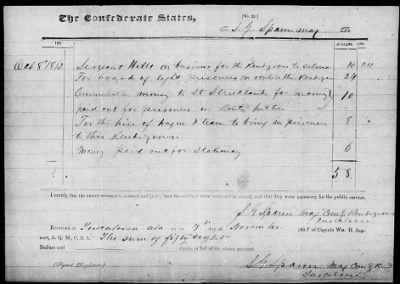 The Confederate States,
[No. 22.]
To S. G. Spann Maj Dr.
186
DOLLARS. CTS.
Oct 8th 1863 Sergeant Wells on business for the Rendezvous to Selma 10 00
For board of eight prisoners in route to the Rendezvous 24
Commutation money to Lt Strickland for money 10
paid out for prisoners in Route hither
For the hire of wagon & team to bring in prisoners 8
to this Rendezvous
Money paid out for Stationery 6
58
I certify that the above account is correct and just; that the services were rendered as stated, and that they were necessary for the public service.
S. G. Spann Maj Comdg Rendezvous
Tuscaloosa
Received at Tuscaloosa Ala 7th November 186 of Captain Wm. H.
A. Q. M. C. S. A. The sum of fifty eight
Dollars and cents, in full of the above account.
(Signed Duplicates)
S. G. Spann Maj Comdg Rend
Tuscaloosa